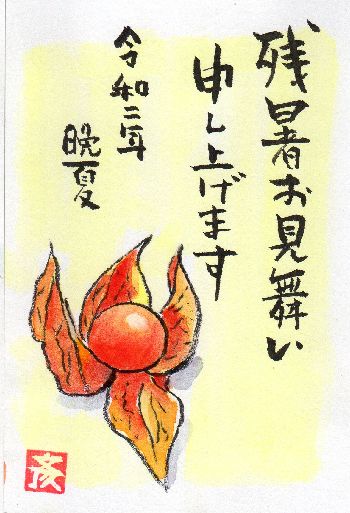 残暑お見舞い
申し上げます
令和二年
晩夏
彦